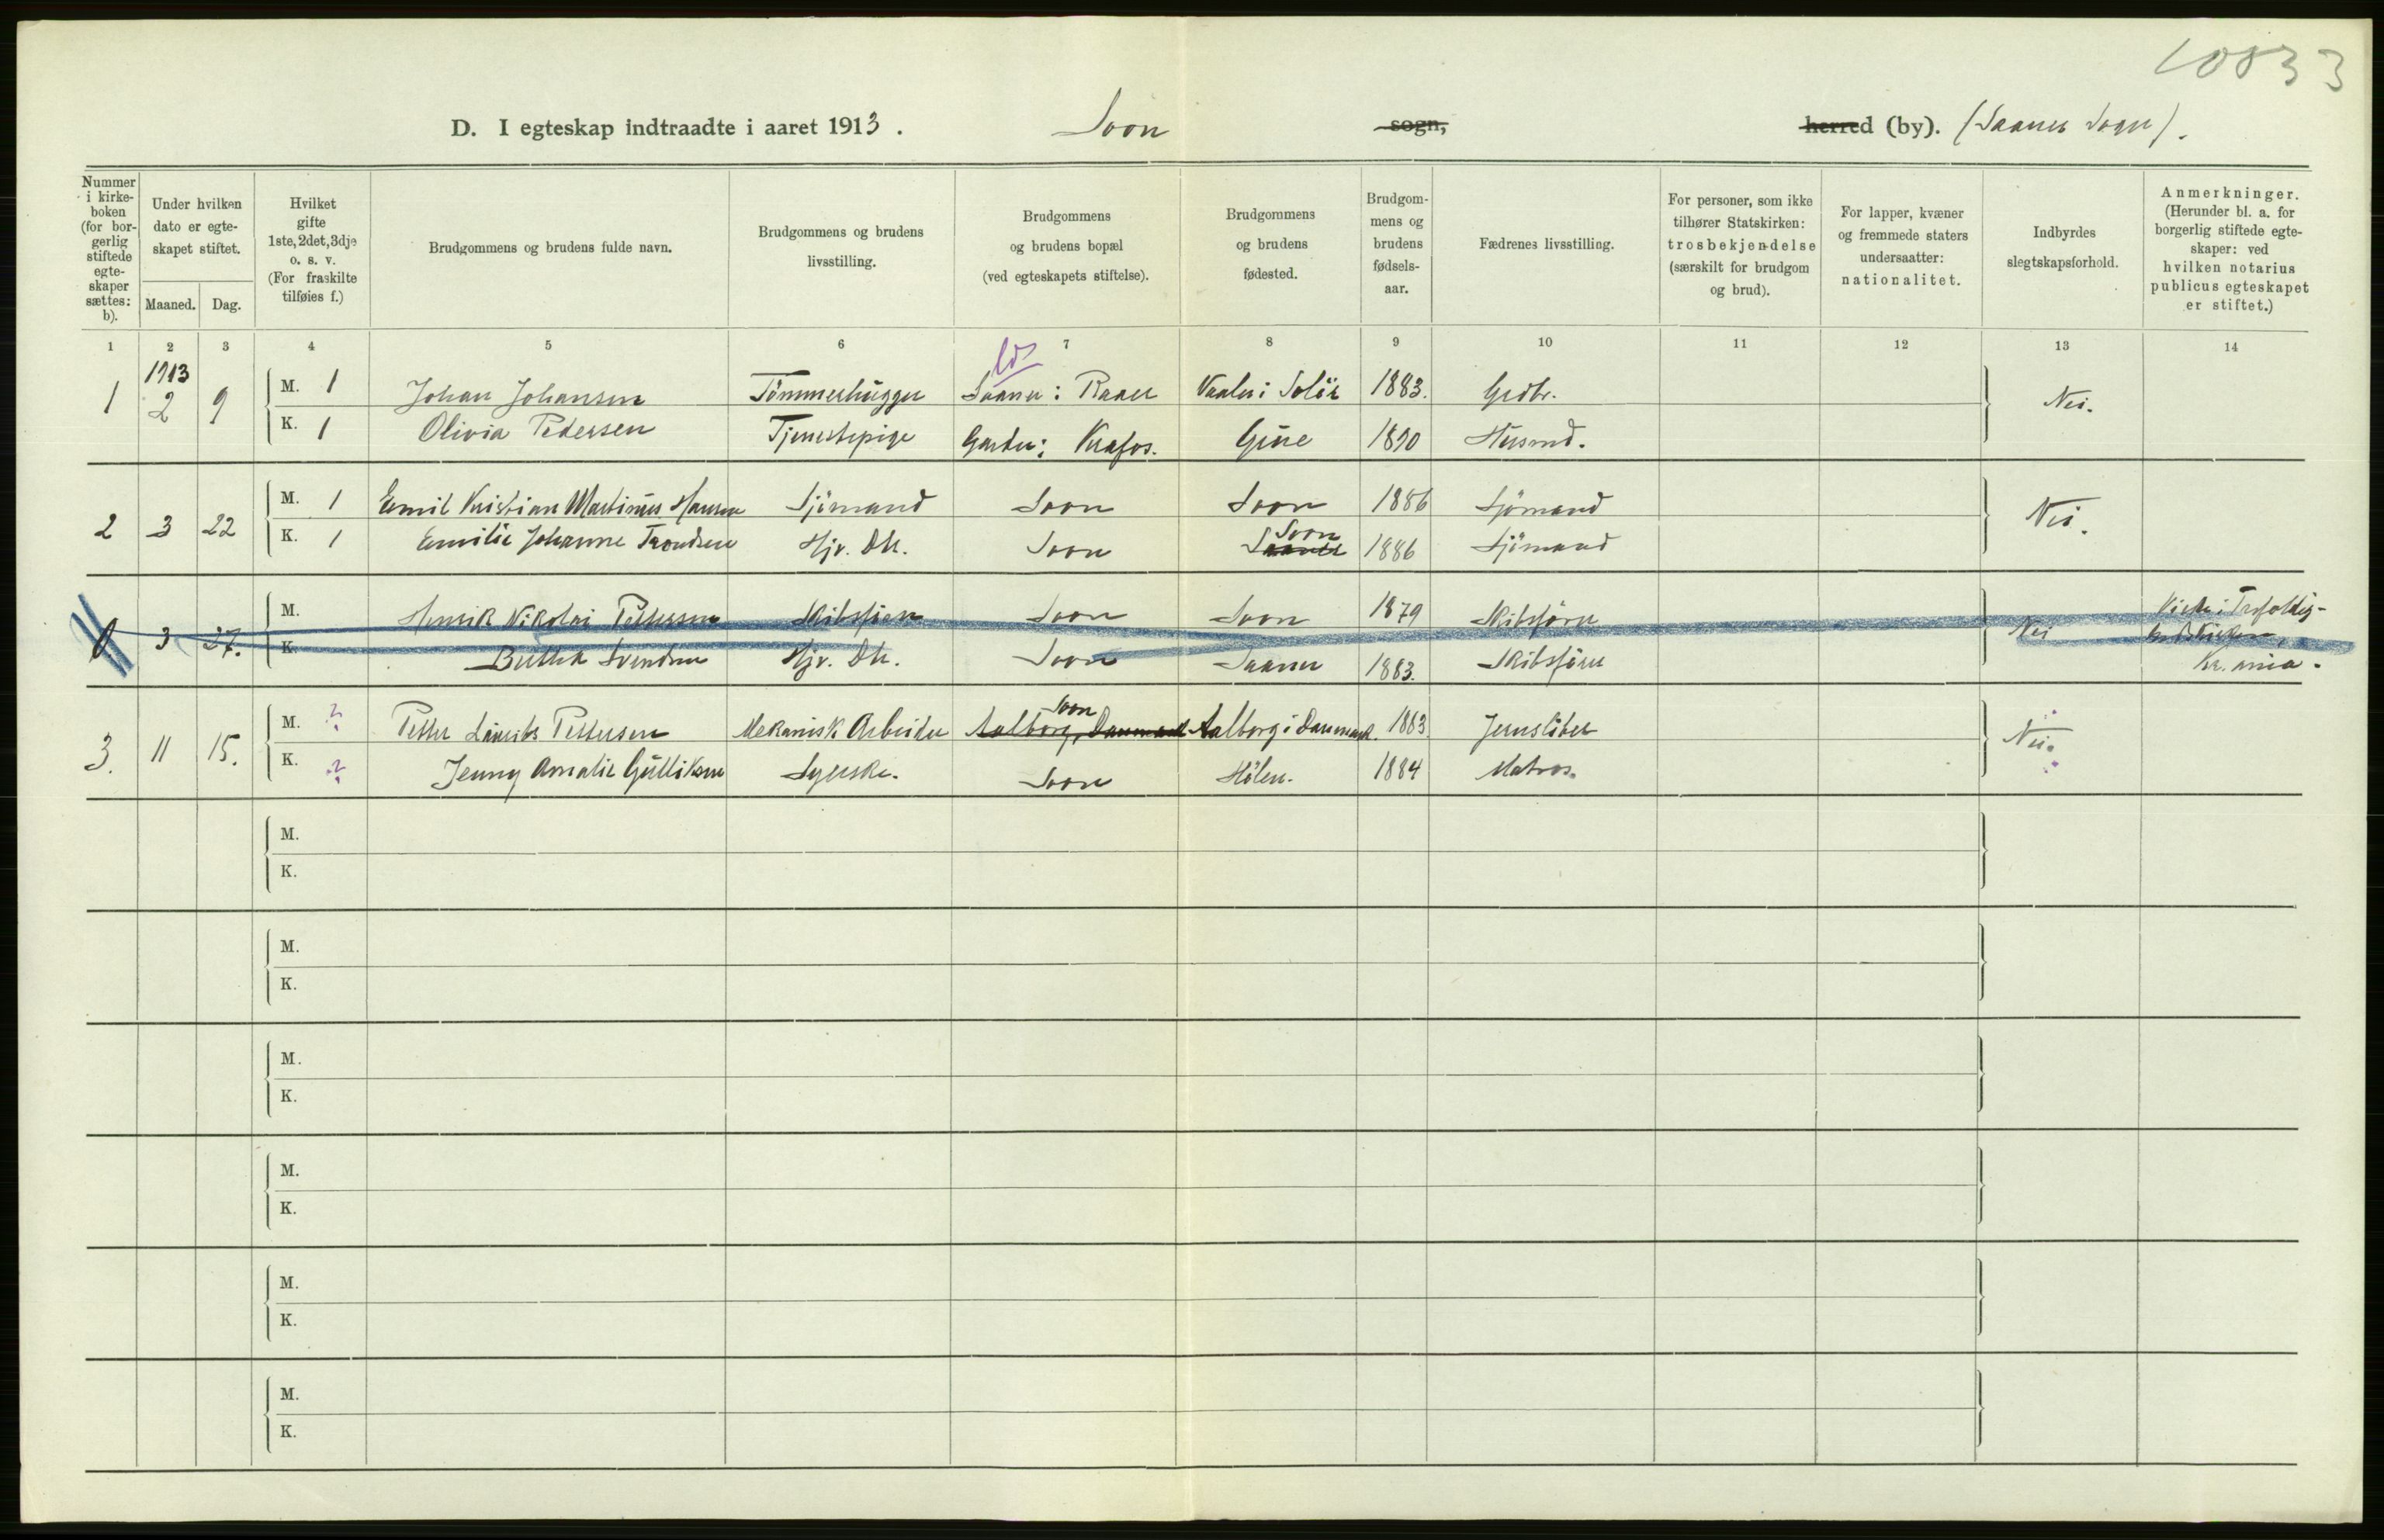 10833
D. I egteskap indtraadte i aaret 1913. Soon sogn, herred (by). (Saaner Sogn).
Nummer i kirkeboken (for borgerlig stiftede egteskaper sættes: b).
Under hvilken dato er egteskapet stiftet.
Maaned. Dag.
Hvilket gifte 1ste, 2det, 3dje o. s. v. (For fraskilte tilføies f.)
Brudgommens og brudens fulde navn.
Brudgommens og brudens livsstilling.
Brudgommens og brudens bopæl (ved egteskapets stiftelse).
Brudgommens og brudens fødested.
Brudgommens og brudens fødselsaar.
Fædrenes livsstilling.
For personer, som ikke tilhører Statskirken: trosbekjendelse (særskilt for brudgom og brud).
For lapper, kvæner og fremmede staters undersaatter: nationalitet.
Indbyrdes slegtskapsforhold.
Anmerkninger. (Herunder bl. a. for borgerlig stiftede egteskaper: ved hvilken notarius publicus egteskapet er stiftet.)
1 2 3 4 5 6 7 8 9 10 11 12 13 14
1913
1 2 9 M. 1 Johan Johansen Tømmerhugger Saaner: Raaer Vaaler i Solør 1883. Grdbr. Nei.
K. 1 Olivia Pedersen Tjenestepige Garder: Krafos. Grue 1890 Husmd.
2 3 22 M. 1 Emil Kristian Martinus Hansen Sjömand Soon Soon 1886 Sjömand Nei.
K. 1 Emilie Johanne Trondsen Hjv. Dtr. Soon Saaner Soon 1886 Sjömand
3 27. M. Henrik Nikolai Pettersen Skibsförer Soon Soon 1879 Skibsförer Nei Viede i Trefoldig-
K. Berthe Svendsen Hjv. Dtr. Soon Saaner 1883. Skibsförer Kr.ania.
3. 11 15. M. ? Petter Laurits Pettersen Mekanisk Arbeider Aalborg, Danmark Soon Aalborg i Danmark. 1883 Jernstöber Nei.
K. ? Jenny Amalie Gulliksen Syerske. Soon Hölen. 1884 Matros.
M.
K.
M.
K.
M.
K.
M.
K.
M.
K.
M.
K.